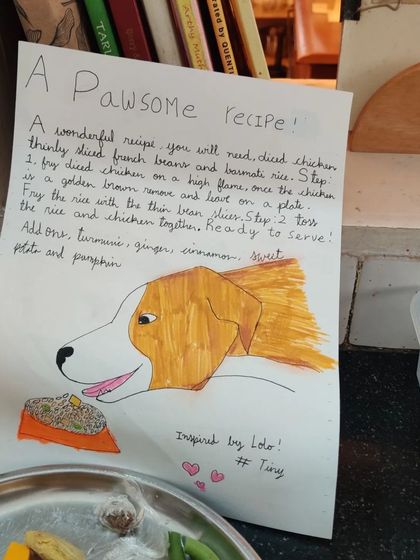 TARL
Arthy Muth
rated by QUENT
A Pawsome recipe!
A wonderful recipe, you will need, diced chicken
thinly sliced french beans and basmati rice. Step:
1. fry diced chicken on a high flame, once the chicken
is a golden brown remove and leave on a plate.
Fry the rice with the thin bean slices. Step: 2 toss
the rice and chicken together. Ready to serve!
Add ons, turmuric, ginger, cinnamon, sweet
potato and pumpkin
Inspired by Lolo!
# Tiny